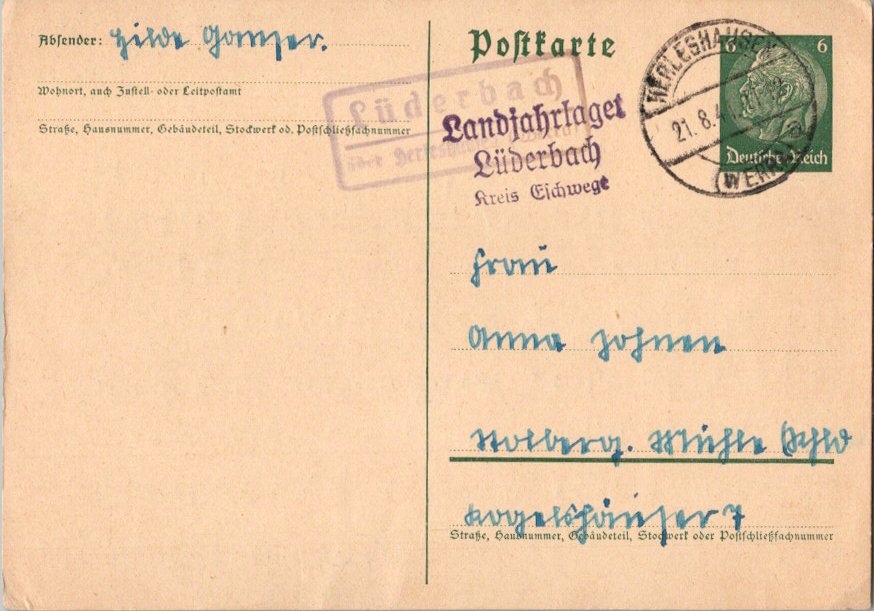 Absender: Hilde Ganser.
Wohnort, auch Zustell- oder Leitpostamt
Straße, Hausnummer, Gebäudeteil, Stockwerk od. Postschließfachnummer
Lüderbach
über
Postkarte
Landjahrlager
Lüderbach
Kreis Eschwege
HERLESHAUSEN
21.8.4
(WERRA)
6 6
Deutsches Reich
Frau
Anna Johnen
Stolberg. Mühle (Rhld
Kogelshäuser 7
Straße, Hausnummer, Gebäudeteil, Stockwerk oder Postschließfachnummer